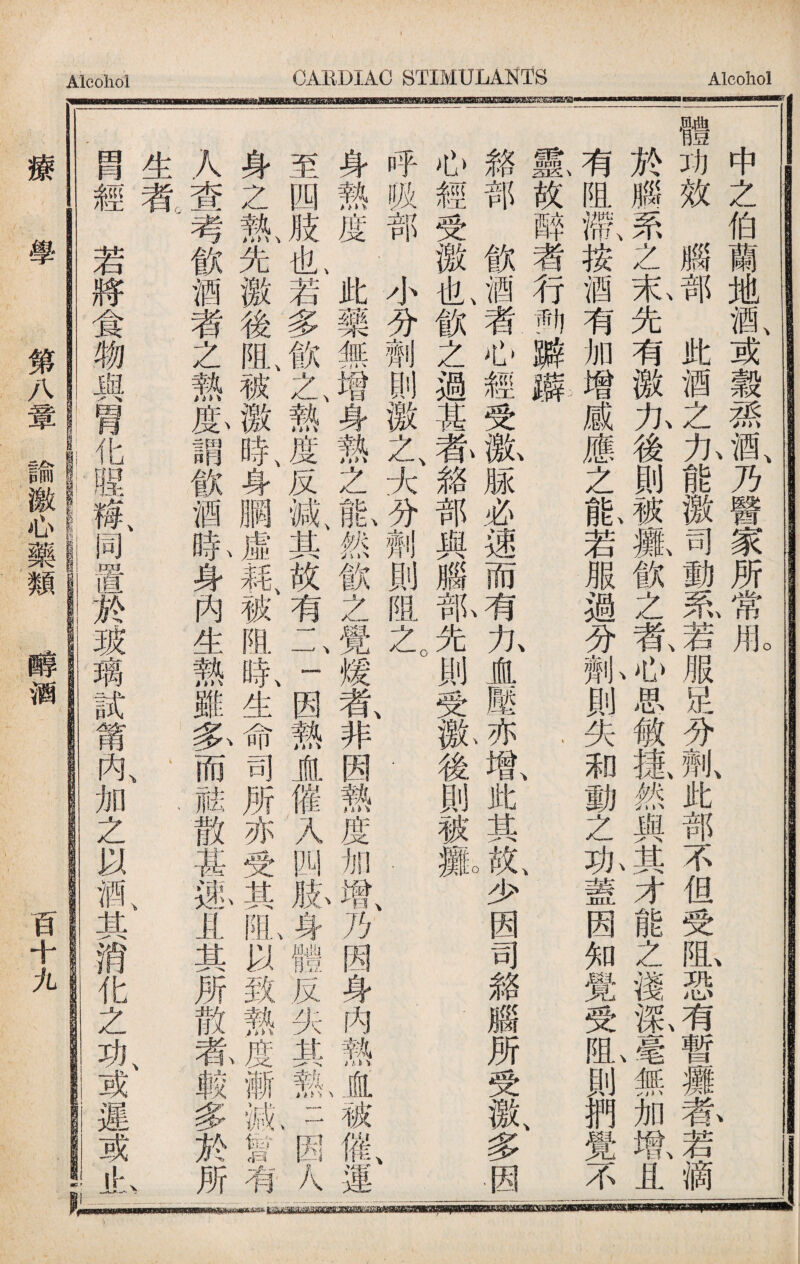 Alcohol CARDIAC STIMULANTS Alcohol
中之伯蘭地酒、或穀烝酒、乃醫家所常用。
體功效 腦部 此酒之力、能激司動系、若服足分劑、此部不但受阻、恐有暫癱者、若滴
於腦系之末、先有激力、後則被癱、飲之者、心思敏捷、然與其才能之淺深、毫無加增、且
有阻滯、按酒有加增感應之能、若服過分劑、則失和動之功、蓋因知覺受阻、則捫覺不
靈、故醉者行動躃躃
絡部 飲酒者心經受激、脉必速而有力、血壓亦增、此其故、少因司絡腦所受激、多因
心經受激也、飲之過甚者、絡部與腦部、先則受激、後則被癱。
呼吸部 小分劑則激之、大分劑則阻之。
身熱度 此藥無增身熱之能、然飲之覺煖者、非因熱度加增、乃因身內熱血被催、運
至四肢也、若多飲之、熱度反減、其故有二、一因熱血催入四肢、身體反失其熱、二因人
身之熱、先激後阻、被激時、身膶虛耗、被阻時、生命司所亦受其阻、以致熱度漸減、曾有
人查考飲酒者之熱度、謂飲酒時、身內生熱雖多、而祛散甚速、且其所散者、較多於所
生者。
胃經 若將食物與胃化腥𪎭、同置於玻璃試筩內、加之以酒、其消化之功、或遲或止、
療學 第八章 論激心藥類 醇酒 百十九